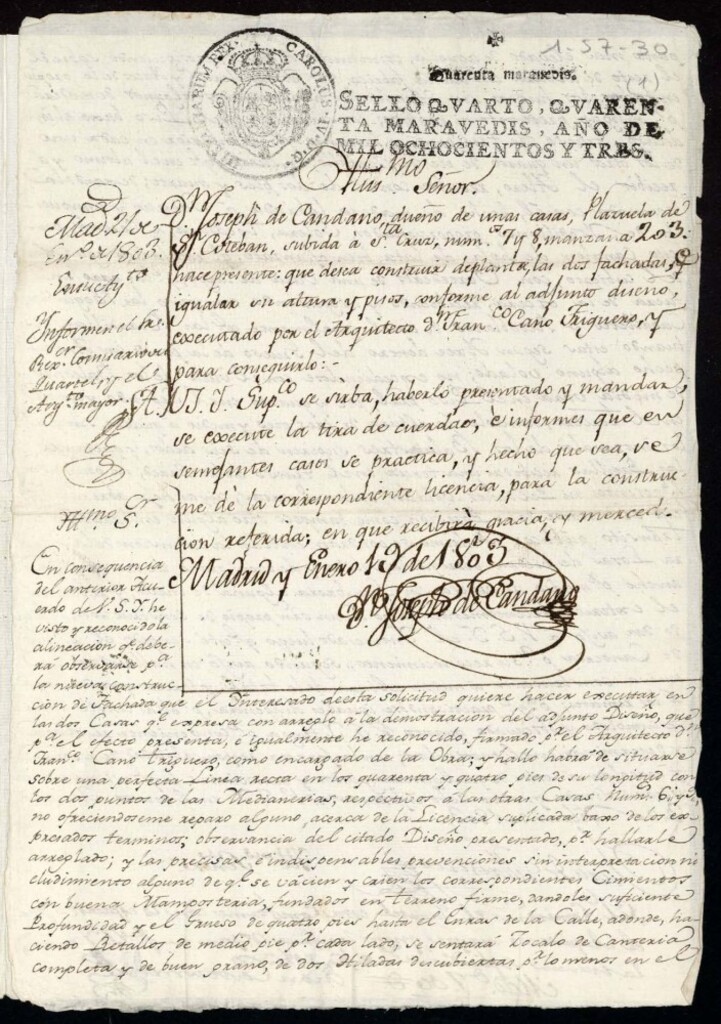 1-57-30
(1)
Quarenta maravedis.
SELLO QVARTO, QVAREN-
TA MARAVEDIS, AÑO DE
MIL OCHOCIENTOS Y TRES.
CAROLUS IV D. G.
HISPANIARUM REX
Illmo
Señor.
Dn Joseph de Candano, dueño de unas casas, Plazuela de
Sn Esteban, subida à Sta Cruz, nums 7 y 8, manzana 203:
hace presente: que desea construir de planta, las dos fachadas, é
igualar su altura y pisos, conforme al adjunto diseño,
executado por el Arquitecto dn Franco Cano Triguero, y
para conseguirlo:-
A. V.S.Y. Supco se sirba, haberlo presentado y mandar,
se execute la tira de cuerdas, é informes que en
semejantes casos se practica, y hecho que sea, se
me dé la correspondiente licencia, para la construc-
cion referida; en que recibirà gracia, y merced.
Madrid y Enero 19 de 1803
Dn Joseph de Candano
Mad 21 de
Eno de 1803.
En su Aytto
Informen el Sr
Rexor Comisario del
Quartel, y el
Arqto mayor.
Yllmo S.
En consequencia
del anterior Acu-
erdo de V.S.Y. he
visto y reconocido la
alineacion qe debe-
rá observarse pa
la nueva construc-
cion de Fachada que el Interesado de esta solicitud quiere hacer executar, en
las dos Casas qe expresa con arreglo á la demostracion del adjunto Diseño, que
pa el efecto presenta, é igualmente he reconocido, firmado pr el Arquitecto dn
Franco Cano Triguero, como encargado de la Obra; y hallo habrá de situarse
sobre una perfecta Linea recta en los quarenta y quatro pies de su longitud con
los dos puntos de las Medianerias, respectivos á las otras Casas Num. 6 y 9
no ofreciendoseme reparo alguno, acerca de la Licencia suplicada baxo de los ex-
presados terminos; observancia del citado Diseño presentado, pr hallarle
arreglado; y las precisas é indispensables prevenciones sin interpretacion ni
eludimiento alguno de qe se vácien y crien los correspondientes Cimientos
con buena Mamposteria, fundados en terreno firme, dandoles suficiente
Profundidad y el Grueso de quatro pies hasta el Enras de la Calle, adonde, ha-
ciendo Retallos de medio pie pr cada lado, se sentará Zocalo de Canteria
completa y de buen grano, de dos Hiladas descubiertas pr lo menos en el